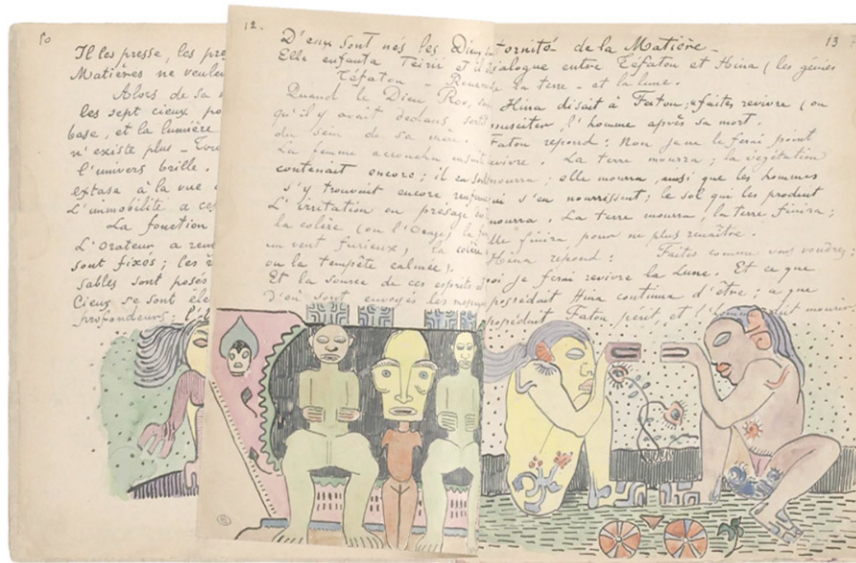 10
Il les presse, les pre
Matières ne veulen
Alors de sa
les sept cieux, po
base, et la lumière
n'existe plus – Tou
l'univers brille.
extase à la vue
L'immobilité a ces
La fonction
L'Orateur a rem
sont fixés; les
sables sont posés
Cieux se sont éle
profondeurs;
12.
D'eux sont nés les Dieu
Elle enfanta Teirii
Téfatou –
Quand le Dieu Roo,
qu'il y avait dedans sort
du sein de sa mère.
La femme accoucha ensuit
contenait encore; il en sor
s'y trouvait encore renfer
L'irritation ou présage
la colère (ou l'Orage)
un vent furieux,
ou la tempête calmée;
Et la source de ces esprits
D'où sont envoyés les
13
ternité de la Matière –
dialogue entre Téfatou et Hina (les génies
la terre – et la lune.
Hina disait à Fatou: «faites revivre (ou
ressusciter, l'homme après sa mort.
Fatou repond: Non je ne le ferai point
revivre. La terre mourra; la végétation
mourra; elle mourra, ainsi que les hommes
qui s'en nourrissent; le sol qui les produit
mourra. La terre mourra, la terre finira;
elle finira, pour ne plus renaître.
Hina repond: Faites comme vous voudrez;
moi je ferai revivre la Lune. Et ce que
possédait Hina continua d'être; ce que
possédait Fatou périt, et l'homme dut mourir